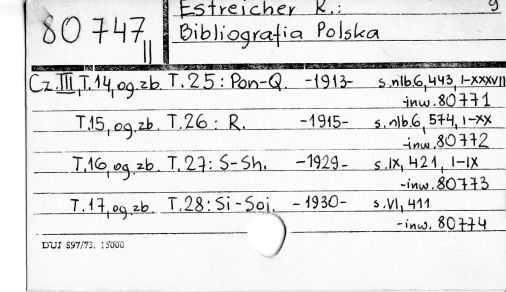 80747 II
Estreicher K.: 9
Bibliografia Polska
Cz. III, T.14, og.zb. T.25: Pon-Q. -1913- s. nlb.6, 443, I-XXXVII
-inw. 80771
T.15, og.zb. T.26: R. -1915- s. nlb.6, 574, I-XX
-inw. 80772
T.16, og.zb. T.27: S-Sh. -1929- s. IX, 421, I-IX
-inw. 80773
T.17, og.zb. T.28: Si-Soj. -1930- s. VI, 411
-inw. 80774
DUJ 897/73. 15000